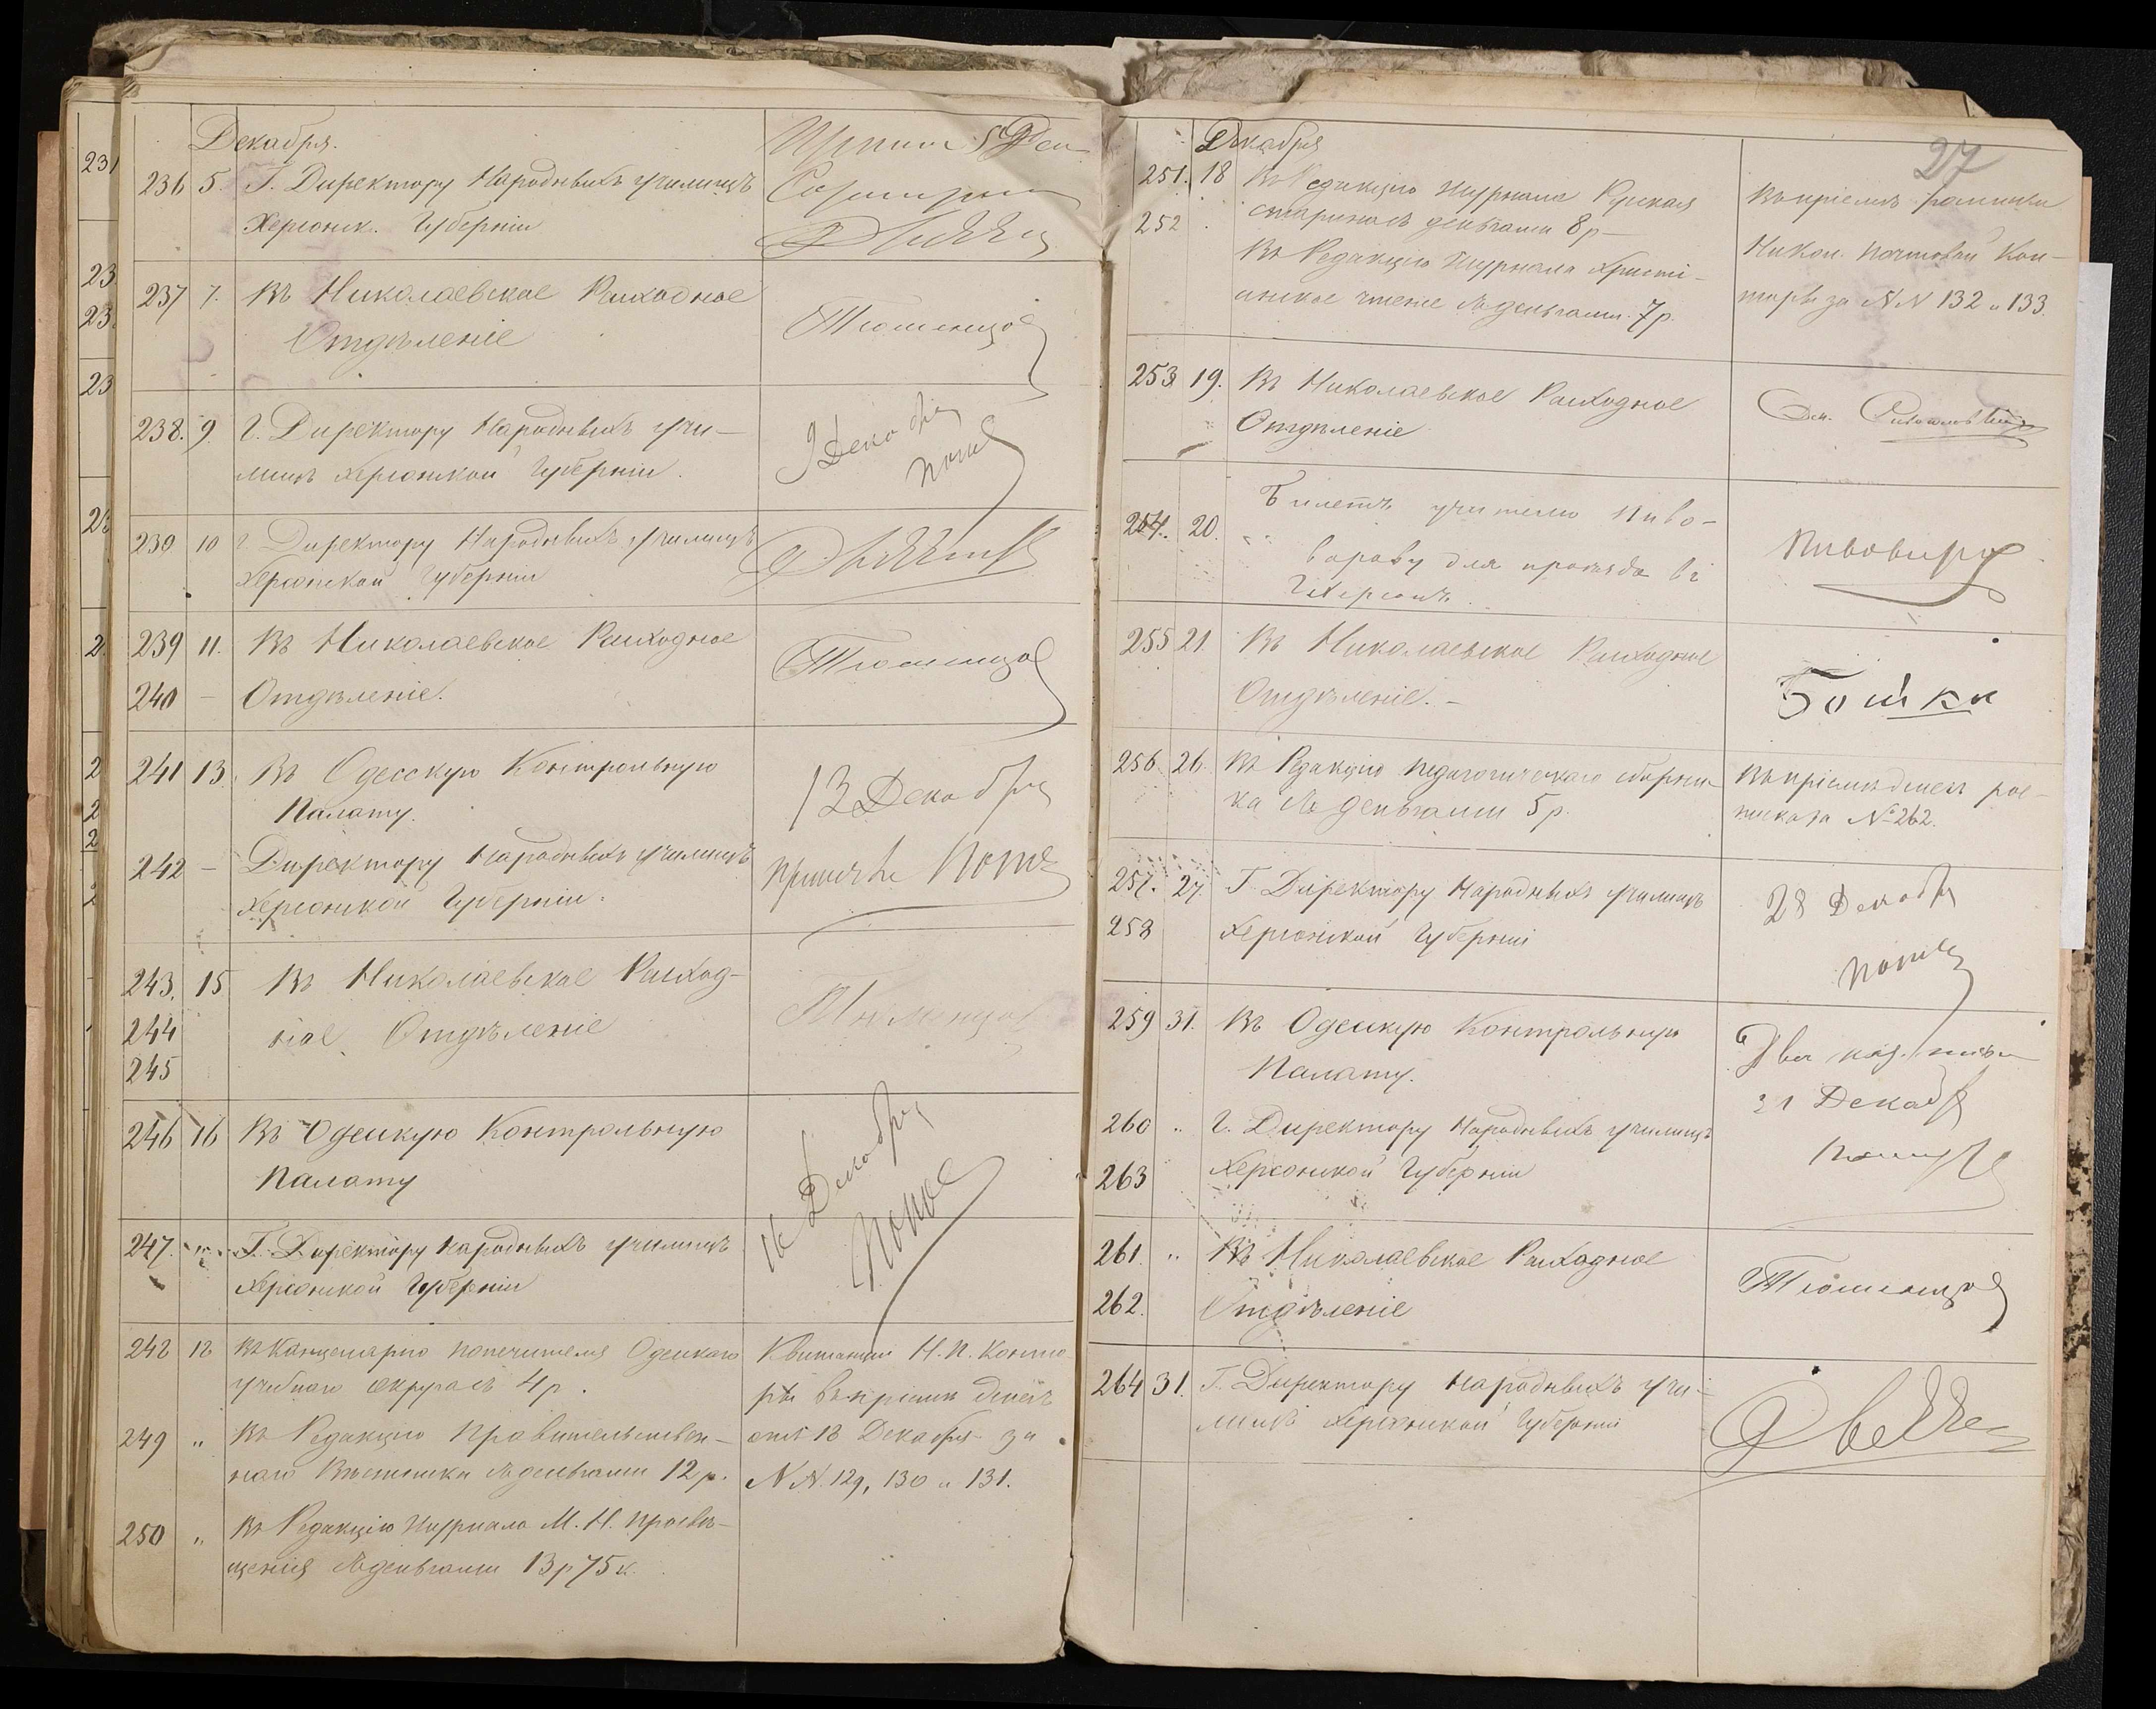 Декабря.
236 5. Г. Директору Народныхъ училищъ
Херсонск. Губерніи
237 7. Въ Николаевское Расходное
Отдѣленіе
Тюменцов
238. 9. Г. Директору Народныхъ учи-
лищъ Херсонской Губерніи.
9 Декабря
239 10 Г. Директору Народныхъ училищъ
Херсонской Губерніи
239 11. Въ Николаевское Расходное
240 – Отдѣленіе.
Тюменцов
241 13. Въ Одесскую Контрольную
Палату.
13 Декабря
242 – Директору Народныхъ училищъ
Херсонской Губерніи.
243. 15 Въ Николаевское Расход-
244 ное Отдѣленіе
245
Тюменцов
246 16 Въ Одесскую Контрольную
Палату
16 Декабря
247. „ Г. Директору Народныхъ училищъ
Херсонской Губерніи
248 18 Въ Канцелярію Попечителя Одесскаго
учебнаго округа съ 4 р.
249 „ Въ Редакцію Правительствен-
наго Вѣстника съ деньгами 12 р.
250 „ Въ Редакцію Журнала М. Н. Просвѣ-
щенія съ деньгами 13 р 75 к.
Квитанціи Н. П. Конто
ры въ пріемѣ денегъ
отъ 18 Декабря за
NN. 129, 130 и 131.
27
Декабря
251. 18 Въ Редакцію Журнала Русская
252 старина съ деньгами 8 р –
Въ Редакцію Журнала Христі-
анское чтеніе съ деньгами. 7 р.
Въ пріемѣ росписка
Никол. Почтовой Кон-
торы за NN 132 и 133.
253 19. Въ Николаевское Расходное
Отдѣленіе
254. 20. Билетъ учителю Пиво-
варову для проѣзда въ
г. Херсонъ.
Пивоваров
255 21. Въ Николаевское Расходное
Отдѣленіе. –
Бойко
256. 26. Въ Редакцію Педагогическаго сборни-
ка съ деньгами 5 р.
Въ пріемѣ денегъ рос-
писка за № 262.
257. 27. Г. Директору Народныхъ училищъ
258 Херсонской Губерніи
28 Декабря
259 31. Въ Одесскую Контрольную
Палату.
Два
31 Декабр
260 „ Г. Директору Народныхъ училищъ
263 Херсонской Губерніи
261. „ Въ Николаевское Расходное
262. Отдѣленіе
Тюменцов
264 31. Г. Директору Народныхъ учи-
лищъ Херсонской Губерніи